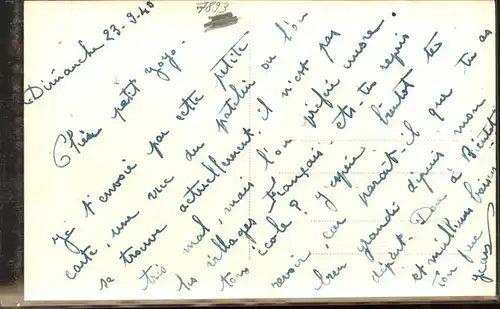 7893
Dimanche 23-9-40
Chère petit yoyo.
Je t'envoie par cette petite
carte, un vue du patelin ou l'on
se trouve actuellement. il n'est pas
très mal, mais l'on préfère encore
les villages français. et tes repris
ton école? J'espère bientôt te
revoir, car paraît-il que tu as
bien grandi depuis mon
départ. Donc à Bientôt
et millions baisers
ton frère